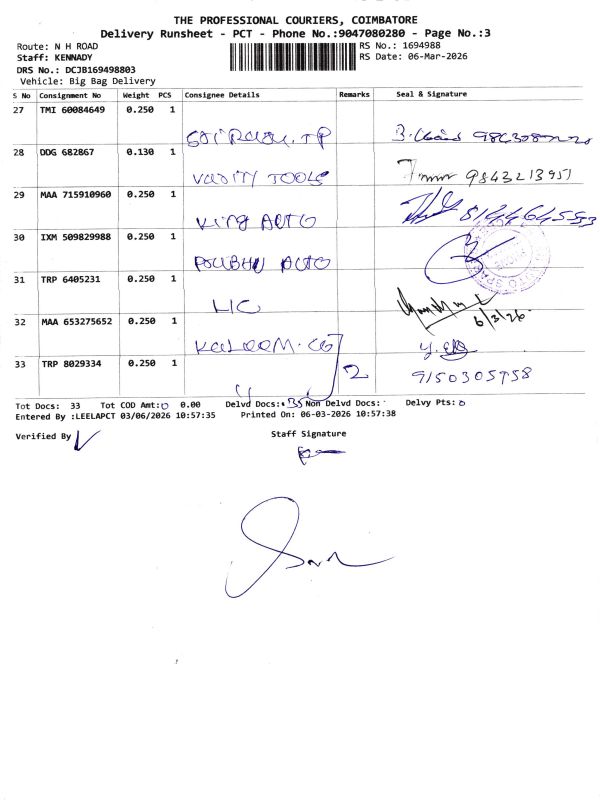 THE PROFESSIONAL COURIERS, COIMBATORE
Delivery Runsheet - PCT - Phone No.:9047080280 - Page No.:3
Route: N H ROAD RS No.: 1694988
Staff: KENNADY RS Date: 06-Mar-2026
DRS No.: DCJB169498803
Vehicle: Big Bag Delivery
S No Consignment No Weight PCS Consignee Details Remarks Seal & Signature
27 TMI 60084649 0.250 1
28 DDG 682867 0.130 1
VARITY TOOLS 9843213951
29 MAA 715910960 0.250 1
KING AUTO 8144464553
30 IXM 509829988 0.250 1
AUTO
31 TRP 6405231 0.250 1
LIC 6/3/26
32 MAA 653275652 0.250 1
33 TRP 8029334 0.250 1
2 9150305958
Tot Docs: 33 Tot COD Amt: 0.00 Delvd Docs: Non Delvd Docs: Delvy Pts:
Entered By :LEELAPCT 03/06/2026 10:57:35 Printed On: 06-03-2026 10:57:38
Verified By Staff Signature